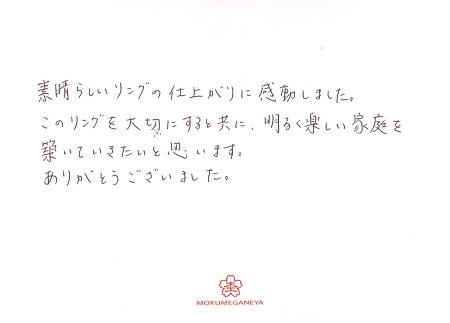 素晴らしいリングの仕上がりに感動しました。
このリングを大切にすると共に、明るく楽しい家庭を
築いていきたいと思います。
ありがとうございました。
MOKUMEGANEYA